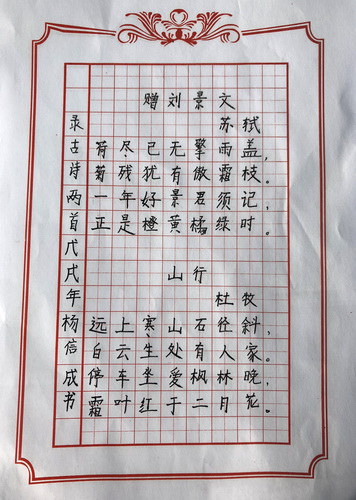 赠刘景文
苏轼
荷尽已无擎雨盖，
菊残犹有傲霜枝。
一年好景君须记，
正是橙黄橘绿时。
山行
杜牧
远上寒山石径斜，
白云生处有人家。
停车坐爱枫林晚，
霜叶红于二月花。
录古诗两首戊戌年杨信成书